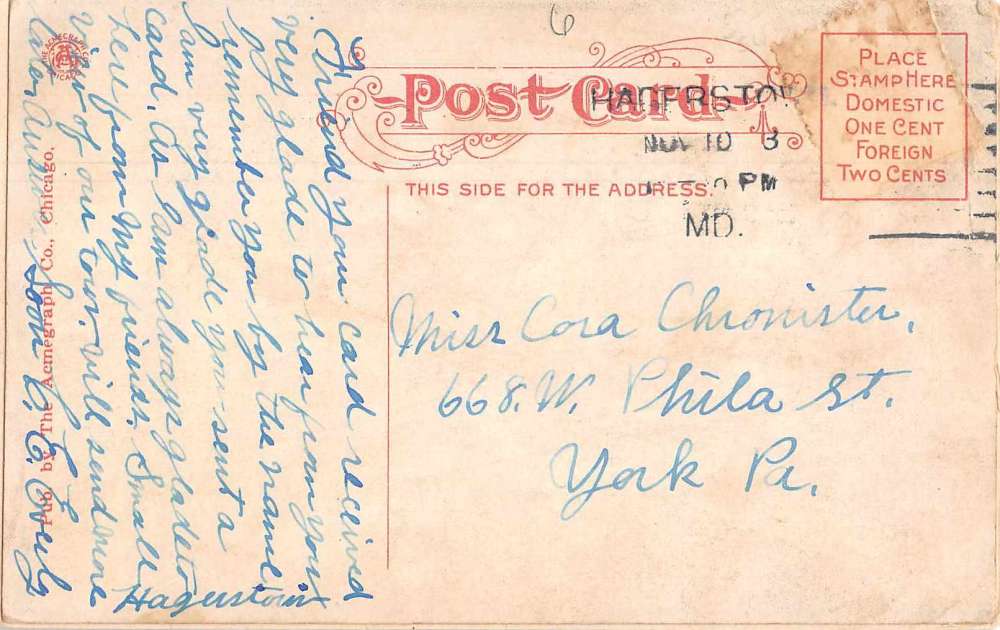 6
Post Card
PLACE
STAMP HERE
DOMESTIC
ONE CENT
FOREIGN
TWO CENTS
HAGERSTOW
NOV 10
PM
MD.
THIS SIDE FOR THE ADDRESS.
Miss Cora Chronister,
668. W. Phila St.
York Pa.
Friend your card received
very glade to hear from you
remember you by the name
I am very glade you sent a
card. as I am always glade to
here from My friends. Small
View of our town. will send more
later.
Soon C. E.
Hagerstown
Pub. by The Acmegraph Co., Chicago.
THE ACMEGRAPH CO.
CHICAGO